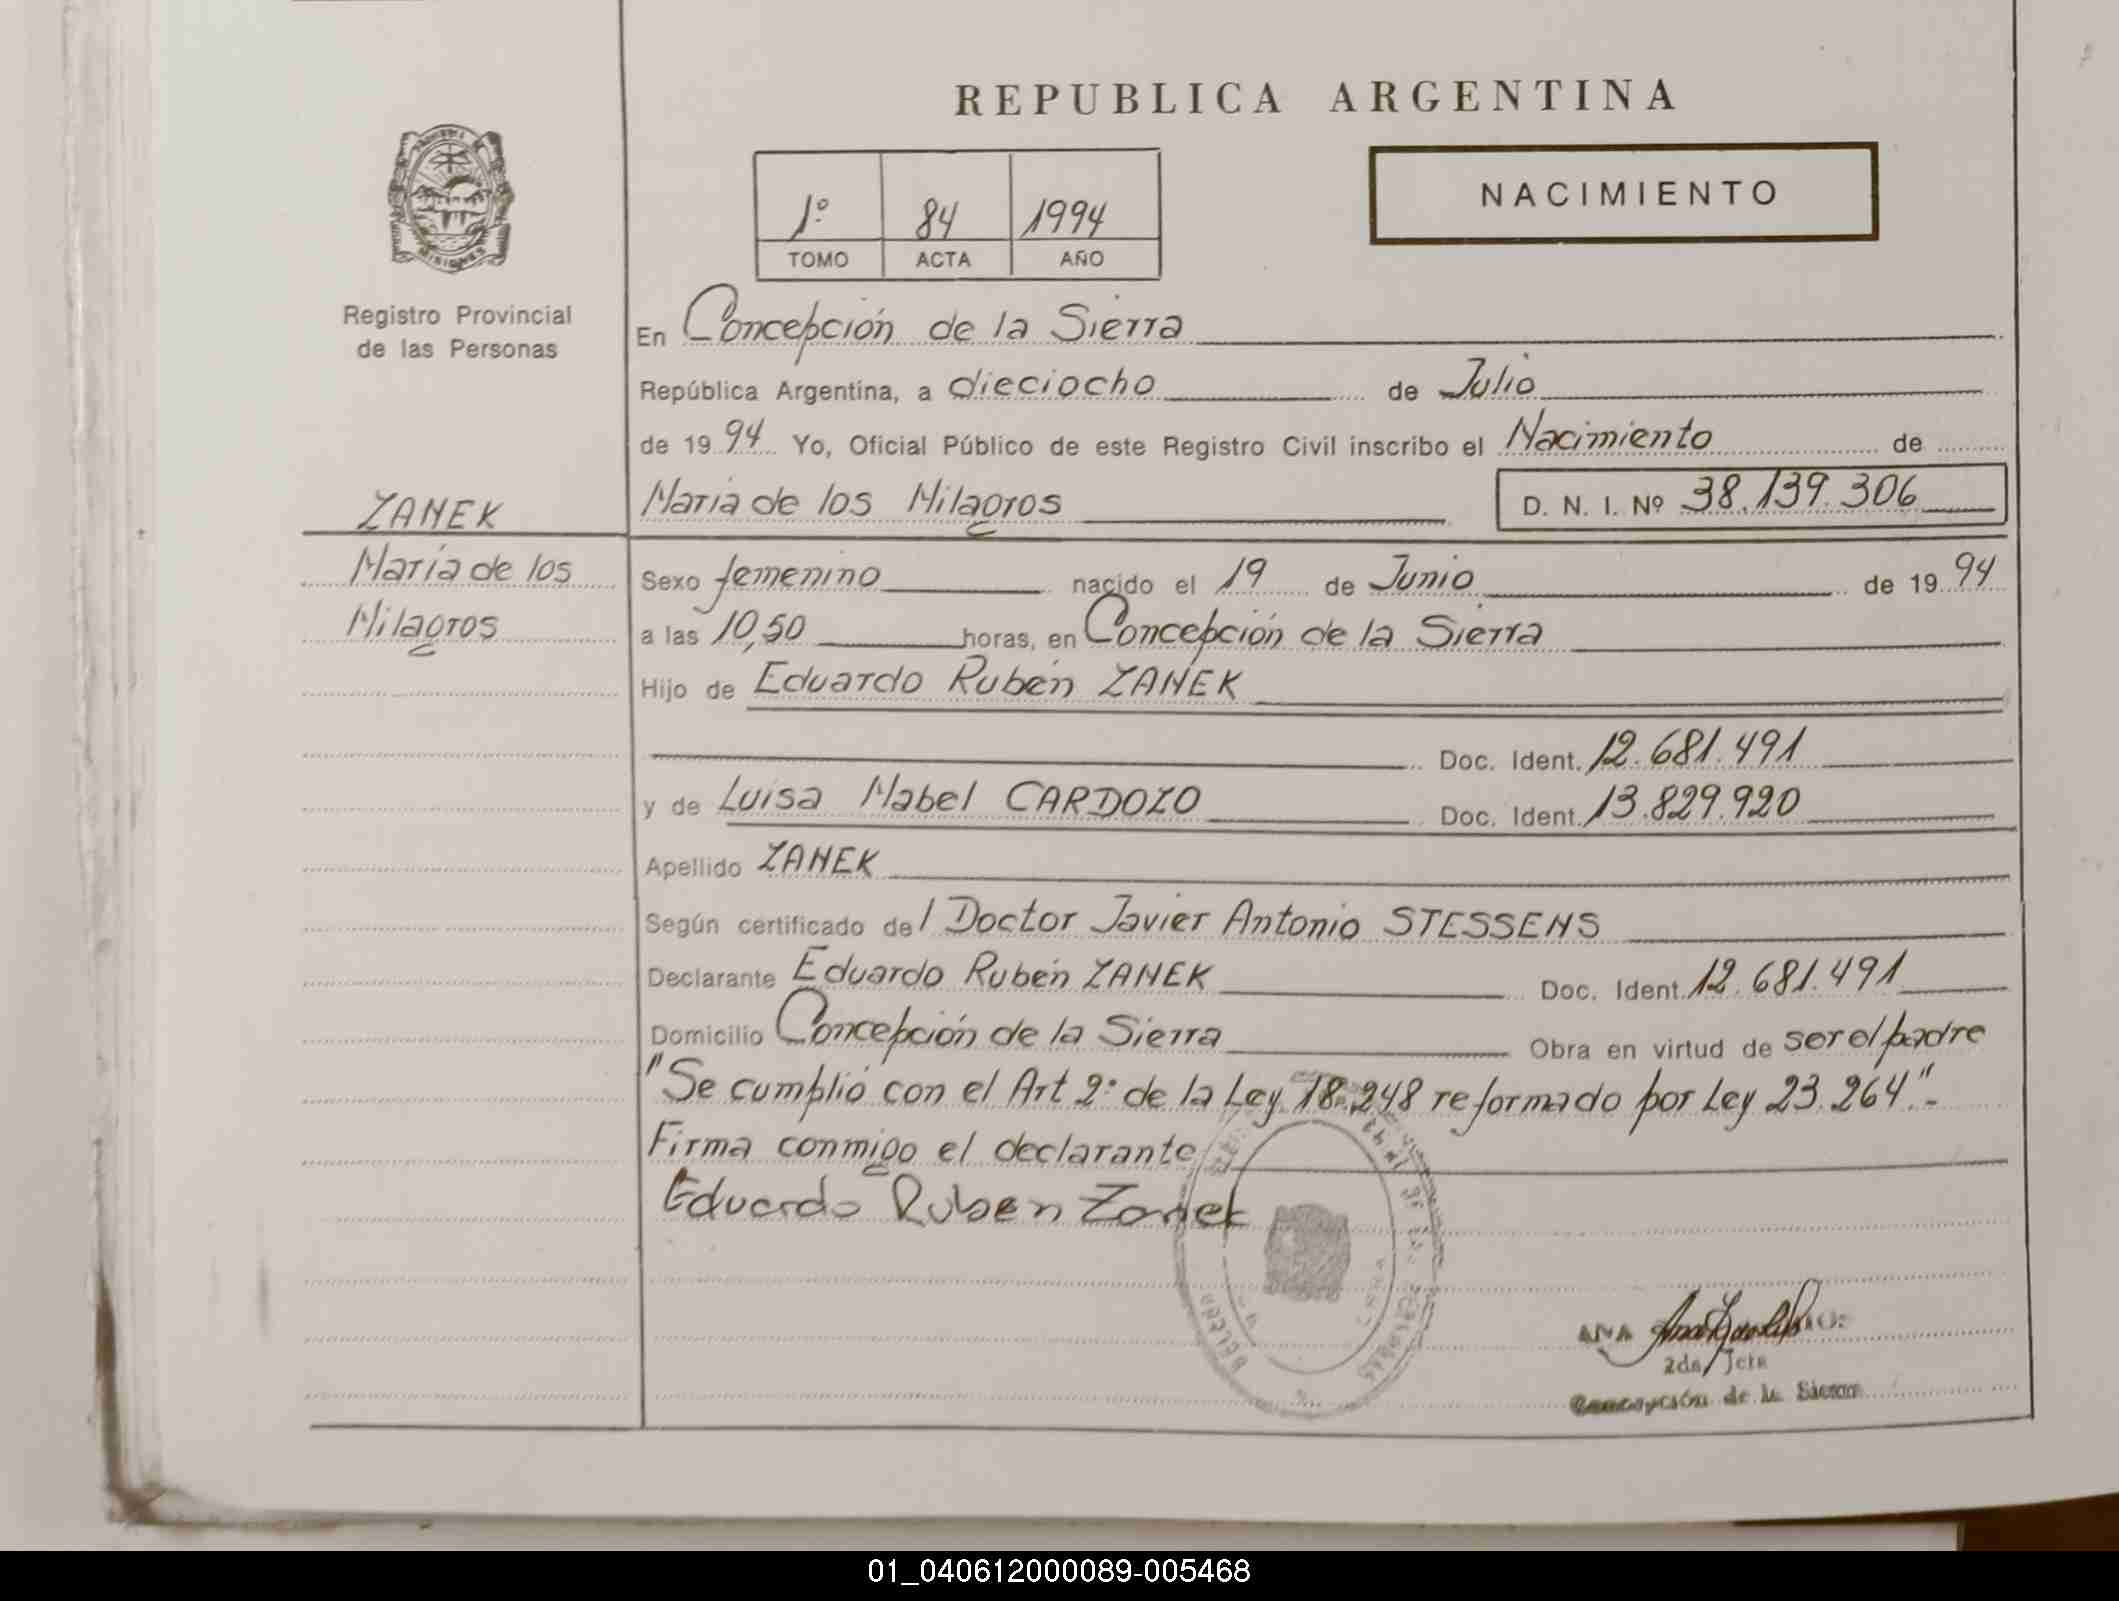 REPUBLICA ARGENTINA
NACIMIENTO
1º 84 1994
TOMO ACTA AÑO
MISIONES
Registro Provincial
de las Personas
En Concepción de la Sierra
República Argentina, a dieciocho de Julio
de 1994 Yo, Oficial Público de este Registro Civil inscribo el Nacimiento de
María de los Milagros D. N. I. Nº 38.139.306
ZANEK
María de los
Milagros
Sexo femenino nacido el 19 de Junio de 1994
a las 10,50 horas, en Concepción de la Sierra
Hijo de Eduardo Rubén ZANEK
Doc. Ident. 12.681.491
y de Luisa Mabel CARDOZO Doc. Ident. 13.829.920
Apellido ZANEK
Según certificado del Doctor Javier Antonio STESSENS
Declarante Eduardo Rubén ZANEK Doc. Ident. 12.681.491
Domicilio Concepción de la Sierra Obra en virtud de ser el padre
"Se cumplió con el Art 2º de la Ley 18.248 reformado por Ley 23.264".-
Firma conmigo el declarante
Eduardo Ruben Zanek
ANA
2da Jefe
Concepción de la Sierra
01_040612000089-005468